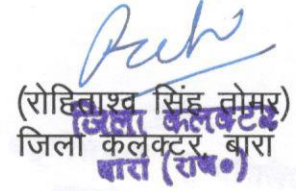 (रोहिताश्व सिंह तोमर)
जिला कलेक्टर, बारां
जिला कलक्टर
बारां (राज०)